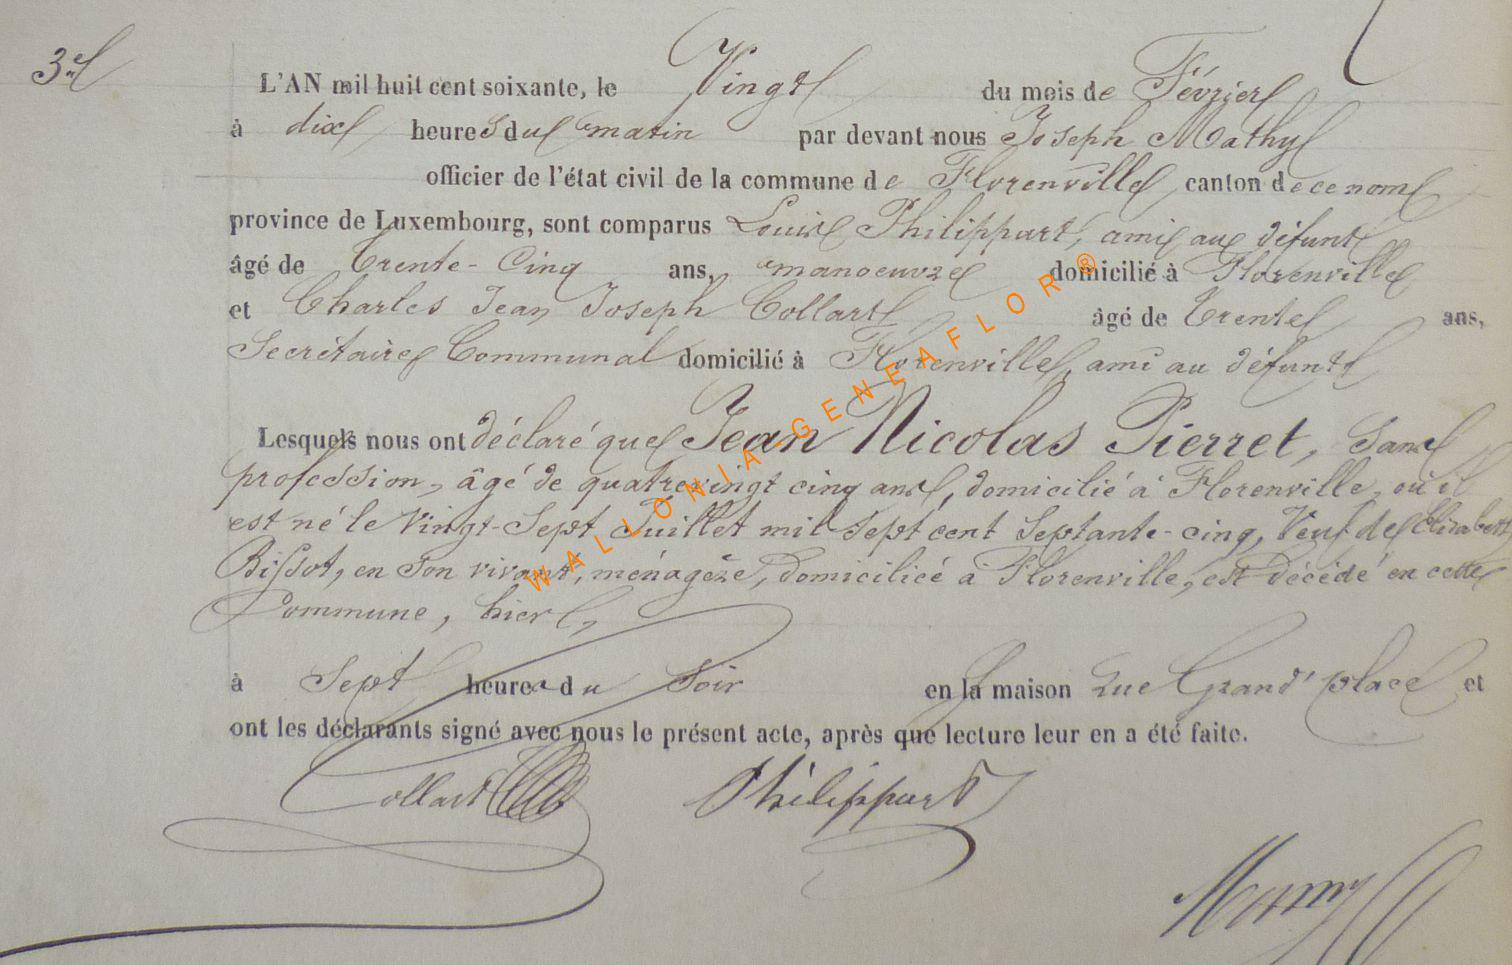 3e
L'AN mil huit cent soixante, le Vingt du mois de Février
à dix heures du matin par devant nous Joseph Mathy
officier de l'état civil de la commune de Florenville, canton de ce nom
province de Luxembourg, sont comparus Louis Philippart, ami au défunt
âgé de Trente-Cinq ans, manoeuvre domicilié à Florenville
et Charles Jean Joseph Collart âgé de Trente ans,
Secrétaire Communal domicilié à Florenville, ami au défunt
Lesquels nous ont déclaré que Jean Nicolas Pierret, Sans
profession, âgé de quatrevingt cinq ans, domicilié à Florenville, où il
est né le Vingt-Sept Juillet mil Sept cent Septante-cinq, Veuf de Elisabeth
Bissot, en son vivant, ménagère, domiciliée à Florenville, est décédé en cette
Commune, hier,
à Sept heures du Soir en la maison rue Grand'place et
ont les déclarants signé avec nous le présent acte, après que lecture leur en a été faite.
Collart Philippart
Mathy
WALLONIA-GENEAFLOR ®